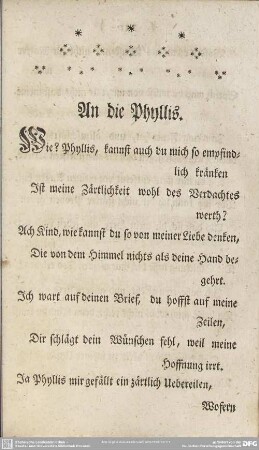 An die Phyllis.
Wie? Phyllis, kannst auch du mich so empfind-
lich kränken
Ist meine Zärtlichkeit wohl des Verdachtes
werth?
Ach Kind, wie kannst du so von meiner Liebe denken,
Die von dem Himmel nichts als deine Hand be-
gehrt.
Ich wart auf deinen Brief, du hoffst auf meine
Zeilen,
Dir schlägt dein Wünschen fehl, weil meine
Hoffnung irrt.
Ja Phyllis mir gefällt ein zärtlich Uebereilen,
Wofern
DFG